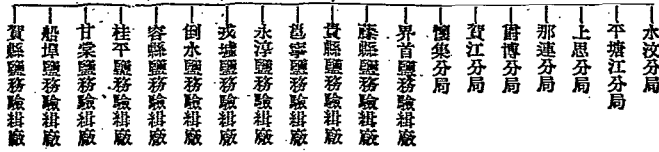 水汶分局
平塘江分局
上思分局
那連分局
爵博分局
賀江分局
懷集分局
界首鹽務驗緝廠
藤縣鹽務驗緝廠
貴縣鹽務驗緝廠
邕寧鹽務驗緝廠
永淳鹽務驗緝廠
戎墟鹽務驗緝廠
倒水鹽務驗緝廠
容縣鹽務驗緝廠
桂平鹽務驗緝廠
甘棠鹽務驗緝廠
船埠鹽務驗緝廠
賀縣鹽務驗緝廠